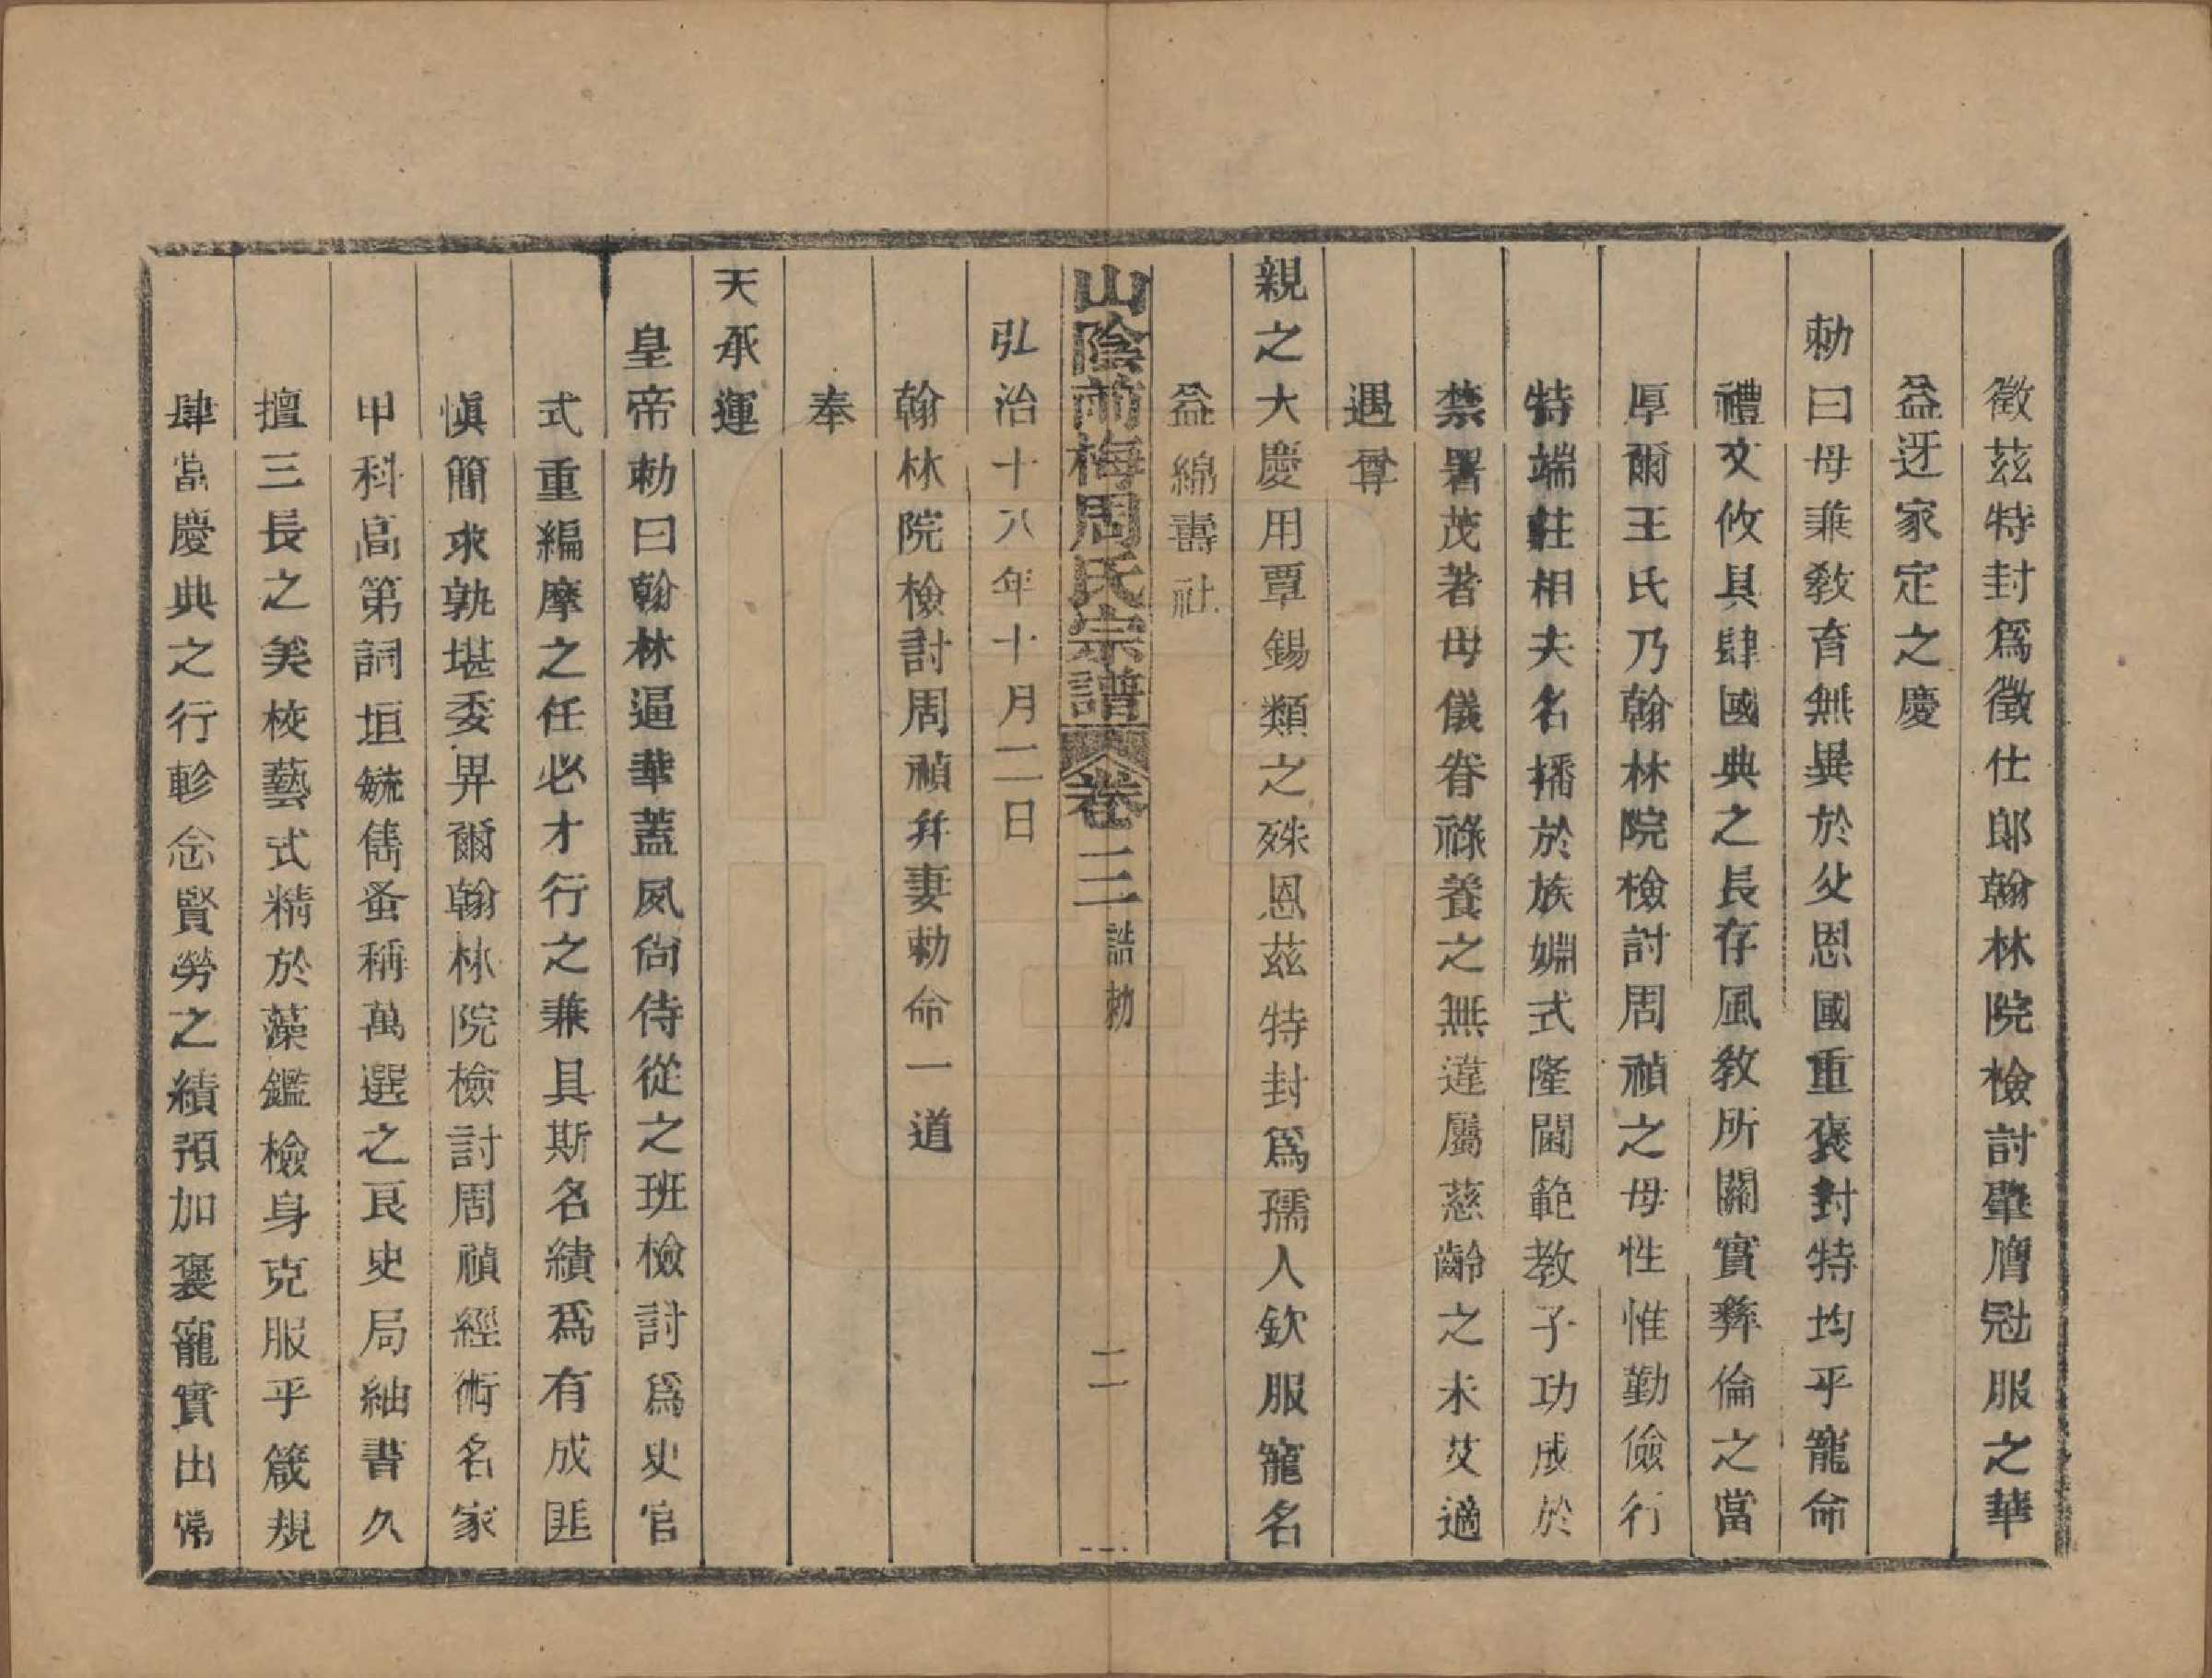 徵茲特封爲徵仕郎翰林院檢討肇膺冠服之華
益迓家定之慶
勅曰母兼教育無異於父恩國重褒封特均乎寵命
禮文攸具肆國典之長存風教所關實彝倫之當
厚爾王氏乃翰林院檢討周禎之母性惟勤儉行
特端莊相夫名播於族婣式隆閫範教子功成於
禁署茂著母儀眷祿養之無違屬慈齡之未艾適
遇尊
親之大慶用覃錫類之殊恩茲特封爲孺人欽服寵名
益綿壽祉
山陰前梅周氏宗譜 卷三 誥勅 二
弘治十八年十月二日
翰林院檢討周禎幷妻勅命一道
奉
天承運
皇帝勅曰翰林逼華蓋夙尙侍從之班檢討爲史官
式重編摩之任必才行之兼具斯名績爲有成匪
愼簡求孰堪委畀爾翰林院檢討周禎經術名家
甲科高第詞垣毓儁蚤稱萬選之良史局紬書久
擅三長之美校藝式精於藻鑑檢身克服乎箴規
肆當慶典之行軫念賢勞之績預加褒寵實出常